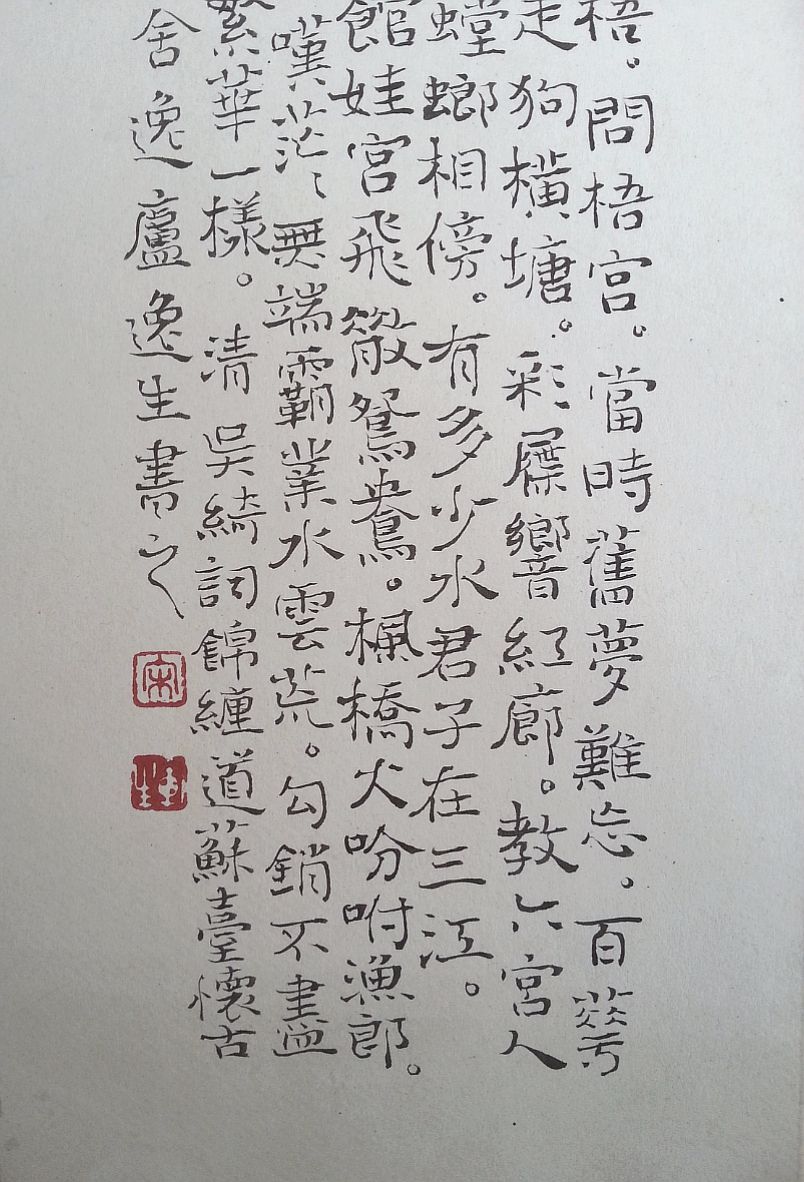 梧。問梧宮。當時舊夢難忘。百
走狗橫塘。彩屧響紅廊。教六宮人
螳螂相傍。有多少水君子在三江。
館娃宮飛散鴛鴦。楓橋火吩咐漁郎。
嘆茫〻無端霸業水雲荒。勾銷不盡
繁華一樣。清 吳綺詞錦纏道蘇臺懷古
舍逸廬逸生書之
宋